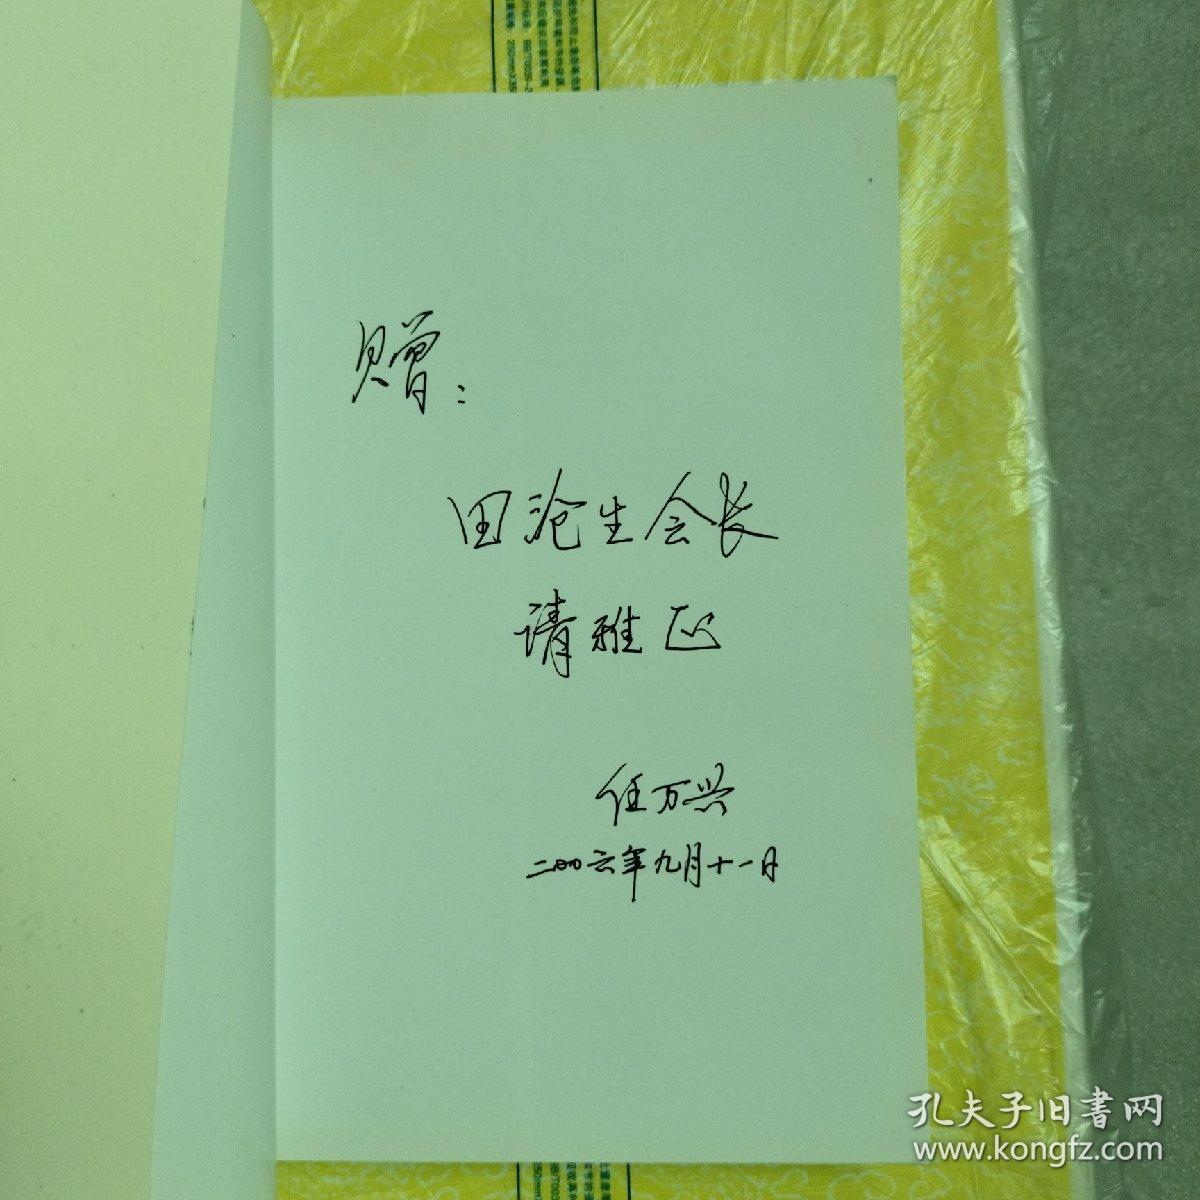 赠：
田沧生会长
请雅正
任万兴
二〇〇六年九月十一日
孔夫子旧书网
www.kongfz.com